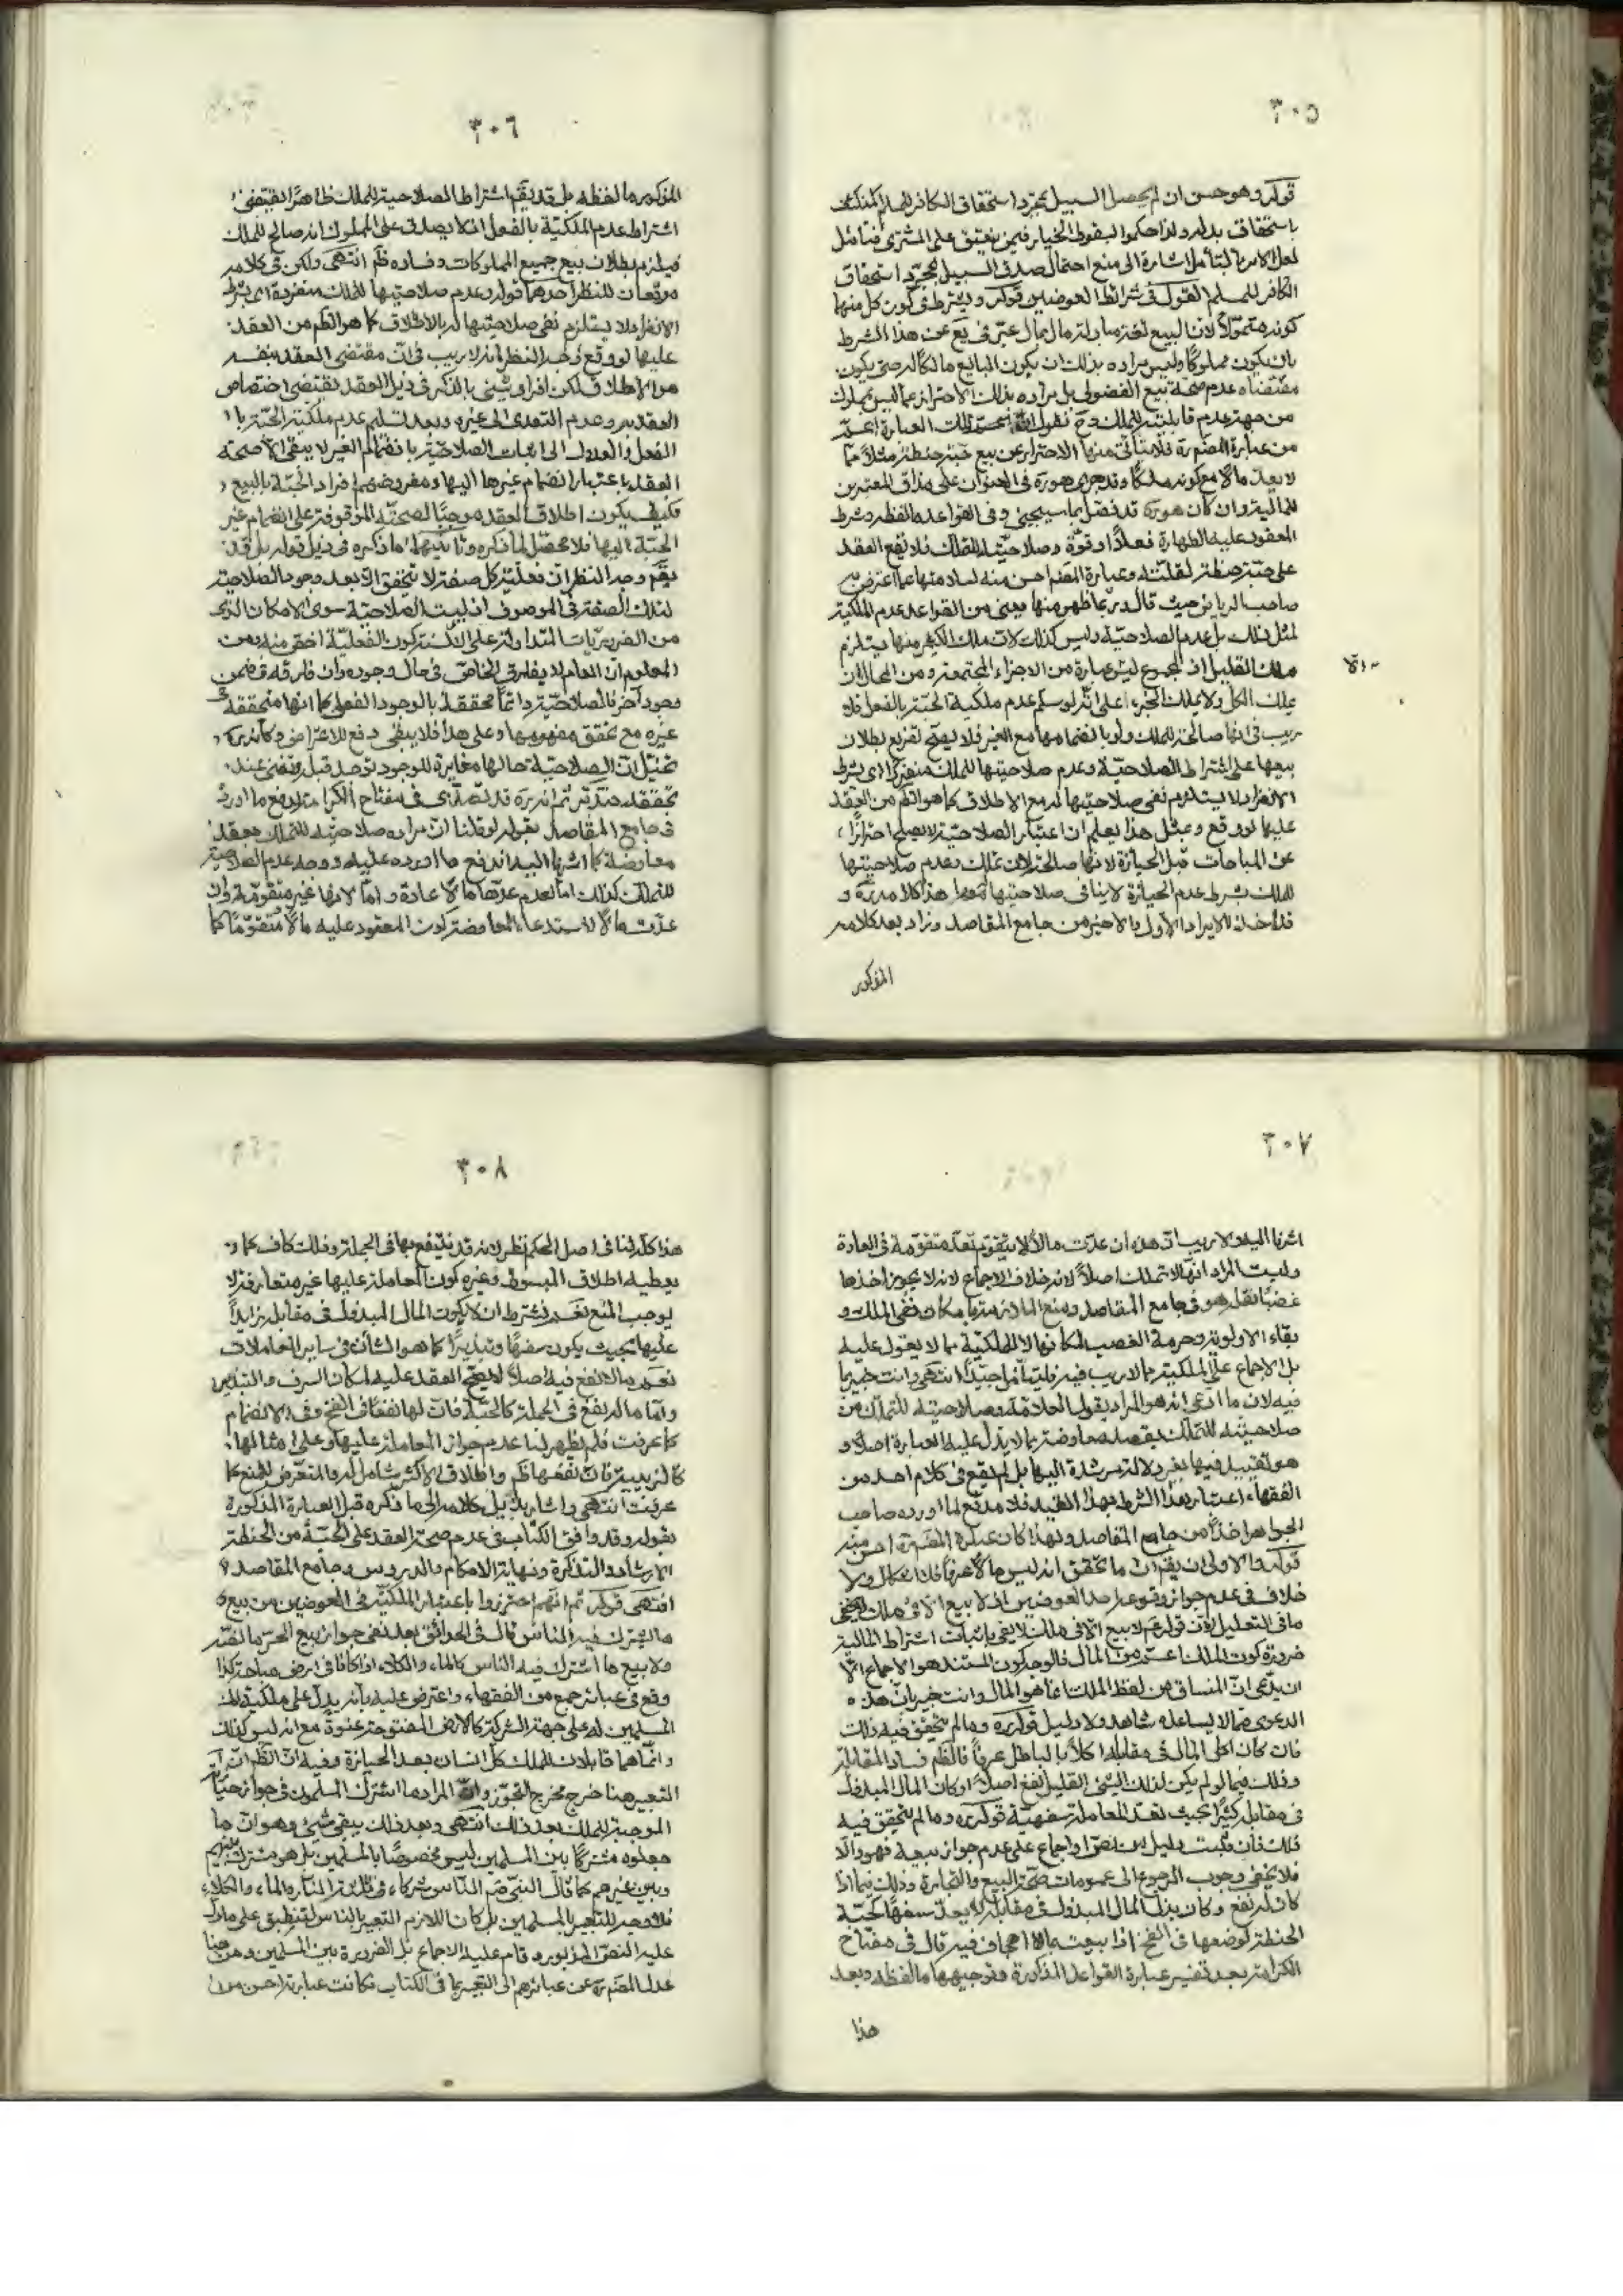 ٣٠٥
قوله وهو حسن ان لم يحصل السبيل بمجرد استحقاق الكافر للمسلم المنكشف
باستحقاق بدله ولذا حكموا بسقوط الخيار فيمن ينعتق على المشترى فتأمل
لعل الامر بالتأمل اشارة الى منع احتمال صدق السبيل بمجرد استحقاق
الكافر للمسلم القول فى شرائط العوضين قوله ويشترط فى كون كل منهما
كونه متموّلاً لان البيع لغة مبادلة مال بمال عبّر فى يع عن هذا الشرط
بان يكون مملوكًا وليس مراده بذلك ان يكون البايع مالكًا له حتى يكون
مقتضاه عدم صحة بيع الفضولى بل مراده بذلك الاحتراز عما ليس بمملوك
من جهة عدم قابليته للملك وح نقول ان تلك العبارة اعمّ
من عبارة المصنف ره فلا يتأتى منها الاحتراز عن بيع حبة حنطة مثلاً مما
لا يعد مالا مع كونه ملكًا وقد جرى هو ره فى العنوان على مذاق المعتبرين
للمالية وان كان هو ره قد فصّل بما سيجئ وفى القواعد ما لفظه وشرط
المعقود عليه الطهارة فعلاً او قوّة وصلاحيته للتملك فلا يقع العقد
على حبة حنطة لقلته وعبارة المصنف احسن منه لسلامتها عما اعترض به
صاحب الرياض حيث قال
لمثل ذلك بل عدم الصلاحيّة وليس كذلك لان ملك الكثير منها يستلزم
ملك القليل اذ المجموع ليس عبارة من الاجزاء المجتمعة ومن المحال ان
يملك الكل ولا يملك الجزء على انّه لو سلم عدم ملكية الحبة بالفعل فلا
ريب فى انها صالحة للملك ولو بانضمامها مع الغير فلا يصح تفريع بطلان
بيعها على اشتراط الصلاحيّة وعدم صلاحيتها للملك منفردة اى بشرط
الانفراد لا يستلزم نفى صلاحيتها له مع الاطلاق كما هو الظم من العقد
عليها لو وقع وبمثل هذا يعلم ان اعتبار الصلاحيّة لا يصلح احترازًا
عن المباحات قبل الحيازة لانها صالحة لان تملك وعدم صلاحيتها
للملك بشرط عدم الحيازة لا ينافى صلاحيتها مطلقا هذا كلامه ره و
قد اخذ الايراد الأول والاخير من جامع المقاصد وزاد بعد كلامه
المذكور
٣٠٦
المذكور ما لفظه بل قد يقم اشتراط الصلاحية للملك ظاهرًا يقتضى
اشتراط عدم الملكيّة بالفعل اذ لا يصدق على المملوك انه صالح للملك
فيلزم بطلان بيع جميع المملوكات وفساده ظم انتهى ولكن فى كلامه
موقعان للنظر احدهما قوله وعدم صلاحيتها للملك منفردة اى بشرط
الانفراد لا يستلزم نفى صلاحيتها له بالاطلاق كما هو الظم من العقد
عليها لو وقع وجه النظر انه لا ريب فى انّ مقتضى العقد بنفسه
هو الاطلاق لكن افراد شئ بالذكر فى ذيل العقد يقتضى اختصاص
العقد به وعدم التعدى الى غيره وبعد تسليم عدم ملكية الحبة
الفعل والعدول الى اثبات الصلاحية بانضمام الغير لا يبقى الا صحة
العقد باعتبار انضمام غيرها اليها ومفروضهم افراد الحبّة بالبيع
فكيف يكون اطلاق العقد موجبًا لصحته الموقوفة على انضمام غير
الحبّة اليها فلا محصّل لما ذكره وثانيهما ما ذكره فى ذيل قوله بل قد
يقم وجه النظر ان فعلية كل صفة لا تتحقق الا بعد وجود الصلاحية
لتلك الصفة فى الموصوف اذ ليست الصلاحيّة سوى الامكان الذى
من الضروريات المتداولة على الالسنة كون الفعليّة اخص منه ومن
المعلوم ان العام لا يفارق الخاص فى حال وجوده وان فارقه فى ضمن
وجود آخر فالصلاحيّة دائمًا متحققة بالوجود الفعلى كما انها متحققة فى
غيره مع تحقق مفهومها وعلى هذا فلا يبقى دفع للاعتراض وكأنه ره
تخيّل ان الصلاحيّة حالها مغايرة للوجود توجد قبل وتفنى عند
تحققه فتدبّر ثم انه ره قد تصدّى فى مفتاح الكرامة لدفع ما اورد
فى جامع المقاصد بقوله لو قلنا ان مراده صلاحيته للتملك بعقد
معاوضة كما اشرنا اليه اندفع ما اورده عليه ووجه عدم الصلاحية
للتملك كذلك اما لعدم عدّها مالا عادة واما لانها غير متقومة وان
عدّت مالاً لاستدعاء المعاوضة كون المعقود عليه مالاً متقوّمًا كما
٣٠٧
اشرنا اليه ولا ريب ان هذه ان عدّت مالاً لا تتقوّم تعدّ متقومة فى العادة
وليست المراد انها لا تملك اصلاً لانه خلاف الاجماع لانه لا يجوز اخذها
غصبًا نقله هو فى جامع المقاصد ومنع الملازمة بامكان نفى الملك و
بقاء الاولوية وحرمة الغصب لمكانها لا الملكيّة مما لا يعول عليه
بل الاجماع على الملكية مما لا ريب فيه فليتأمل جيّدًا انتهى وانت خبير بما
فيه لان ما ادعى انه هو المراد بقول العلامة وصلاحيته للتملك من
صلاحيته للتملك بقصد معاوضة مما لا يدل عليه العبارة اصلا و
هو تقييد فيها بغير دلالة مرشدة اليها بل لم يقع فى كلام احد من
الفقهاء اعتبار هذا الشرط بهذا القيد فلا مدفع لما اورده صاحب
الجواهر اخذًا من جامع المقاصد ولهذا كان عبارة المصنف ره احسن منه
قوله والاولى ان يقم ان ما تحقق انه ليس مالاً عرفًا فلا اشكال ولا
خلاف فى عدم جواز وقوعه احد العوضين اذ لا بيع الا فى ملك لا يخفى
ما فى التعليل لان قوله ع لا بيع الا فى ملك لا يفى باثبات اشتراط المالية
ضرورة كون الملك اعمّ من المال فالوجه كون المستند هو الاجماع الا
ان يدّعى انّ المنساق من لفظ الملك انما هو المال وانت خبير بانّ هذه
الدعوى مما لا يساعده شاهد ولا دليل قوله ره وما لم يتحقق فيه ذلك
فان كان اكل المال فى مقابله اكلاً بالباطل عرفاً فالظم فساد المقابلة
وذلك فيما لو لم يكن لذلك الشئ القليل نفع اصلاً او كان المال المبذول
فى مقابله كثيرًا بحيث تعدّ المعاملة سفهيّة قوله ره وما لم يتحقق فيه
ذلك فان ثبت دليل من نصّ او اجماع على عدم جواز بيعه فهو والا
فلا يخفى وجوب الرجوع الى عمومات صحّة البيع والتجارة وذلك فيما اذا
كان له نفع وكان بذل المال المبذول فى مقابله لا يعدّ سفهًا كحبّة
الحنطة لوضعها فى الفخ اذا بيعت بما لا اجحاف فيه قال فى مفتاح
الكرامة بعد تفسير عبارة القواعد المذكورة وتوجيهها ما لفظه وبعد
هذا
٣٠٨
هذا كله لنا فى اصل الحكم نظر لانه قد ينتفع بها فى الجملة وذلك كاف كما
يعطيه اطلاق المبسوط وغيره كون المعاملة عليها غير متعارفة لا
يوجب المنع نعم يشترط ان لا يكون المال المبذول فى مقابله زايداً
عليها بحيث يكون سفهًا وتبذيرًا كما هو الشأن فى ساير المعاملات
نعم ما لا نفع فيه اصلاً لا يصحّ العقد عليه لمكان السرف والتبذير
وامّا ما له نفع فى الجملة كالحبّة فان لها نفعًا فى الفخ وفى الانضمام
كما عرفت فلم يظهر لنا عدم جواز المعاملة عليها وعلى امثالها
كالزبيبة فانّ نفعها ظم واطلاق الاكثر شامل له والمتعرّض للمنع كما
عرفت انتهى واشار بذيل كلامه الى ما ذكره قبل العبارة المذكورة
بقوله وقد وافق الكتاب فى عدم صحة العقد على الحبّة من الحنطة
الارشاد والتذكرة ونهاية الاحكام والدروس وجامع المقاصد
انتهى قوله ثم انّهم احترزوا باعتبار الملكيّة فى العوضين من بيع
ما يشترك فيه الناس قال فى الحدائق بعد نفى جواز بيع الحرّ ما لفظه
ولا بيع ما اشترك فيه الناس كالماء والكلاء اذا كانا فى ارض مباحة كذا
وقع فى عبائر جمع من الفقهاء واعترض عليه بأنه يدلّ على ملكيّة
المسلمين له على جهة الشركة كالارض المفتوحة عنوةً مع انه ليس كذلك
وانّما هما قابلان لملك كل انسان بعد الحيازة وفيه انّ الظم انّ
التعبير هنا خرج مخرج التجوّز وان المراد ما اشترك المسلمون فى جواز حيازته
الموجبة للملك بعد ذلك انتهى وبعد ذلك يبقى شئ وهو انّ ما
جعلوه مشتركًا بين المسلمين ليس مخصوصًا بالمسلمين بل هو مشترك بينهم
وبين غيرهم كما قال النبى صم النّاس شركاء فى ثلاثة النّار والماء والكلاء
فلا وجه للتعبير بالمسلمين بل كان اللازم التعبير بالناس لتنطبق على ما دلّ
عليه النصّ المزبور وقام عليه الاجماع بل الضرورة بين المسلمين ومن هنا
عدل المصنف ره عن عبائرهم الى التعبير بما فى الكتاب فكانت عبارته احسن من